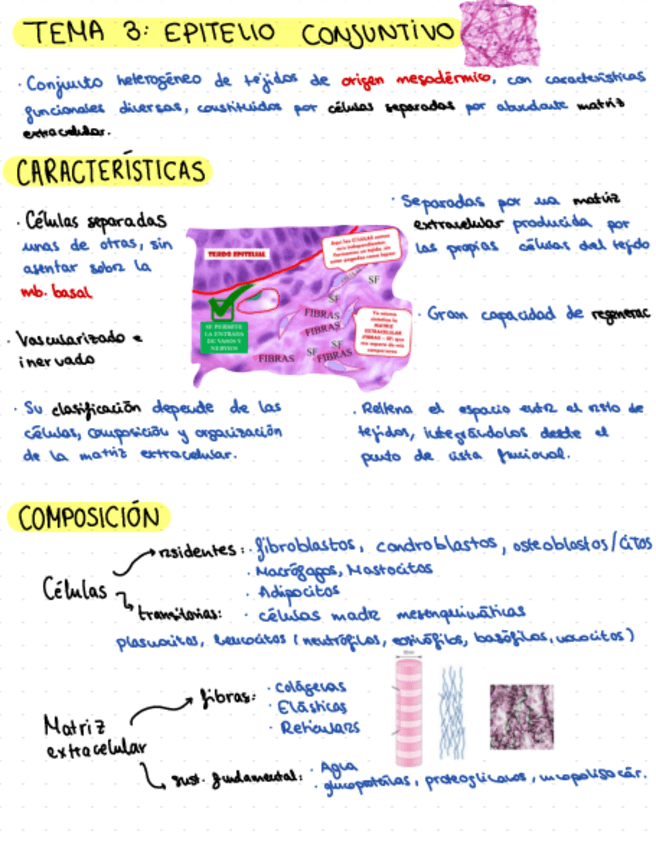 TEMA 3: EPITELIO CONJUNTIVO
· Conjunto heterogéneo de tejidos de origen mesodérmico, con características
funcionales diversas, constituidos por células separadas por abundante matriz
extracelular.
CARACTERÍSTICAS
· Células separadas
unas de otras, sin
asentar sobre la
mb. basal
· Vascularizado e
inervado
· Su clasificación depende de las
células, composición y organización
de la matriz extracelular.
TEJIDO EPITELIAL
SE PERMITE
LA ENTRADA
DE VASOS Y
NERVIOS
SF
SF
FIBRAS
FIBRAS
SF
SF
FIBRAS
FIBRAS
· Separadas por una matriz
extracelular producida por
las propias células del tejido
· Gran capacidad de regenerac
· Rellena el espacio entre el resto de
tejidos, integrándolos desde el
punto de vista funcional.
COMPOSICIÓN
Células
residentes: · fibroblastos, condroblastos, osteoblastos/citos
· Macrófagos, Mastocitos
· Adipocitos
transitorias: · células madre mesenquimáticas
plasmocitos, leucocitos (neutrófilos, eosinófilos, basófilos, monocitos)
Matriz
extracelular
fibras: · Colágenas
· Elásticas
· Reticulares
sust. fundamental: · Agua
· glucoproteínas, proteoglicanos, mucopolisacár.